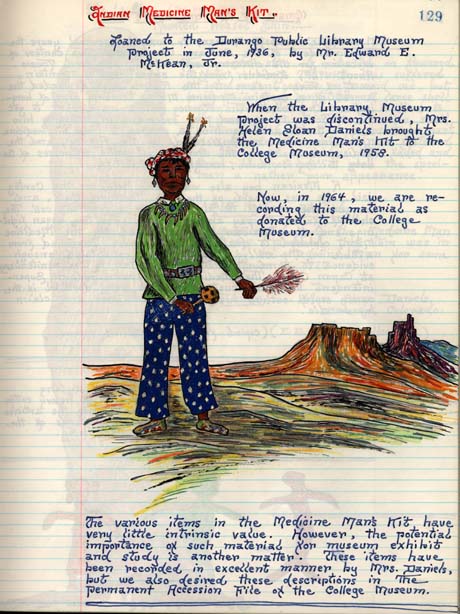 Indian Medicine Man's Kit.
129
Loaned to the Durango Public Library Museum
Project in June, 1936, by Mr. Edward E.
McKean, Jr.
When the Library Museum
Project was discontinued, Mrs.
Helen Sloan Daniels brought
the Medicine Man's Kit to the
College Museum, 1958.
Now, in 1964, we are re-
cording this material as
donated to the College
Museum.
The various items in the Medicine Man's Kit, have
very little intrinsic value. However, the potential
importance of such material for museum exhibit
and study is another matter. These items have
been recorded in excellent manner by Mrs. Daniels,
but we also desired these descriptions in the
Permanent Accession File of the College Museum.